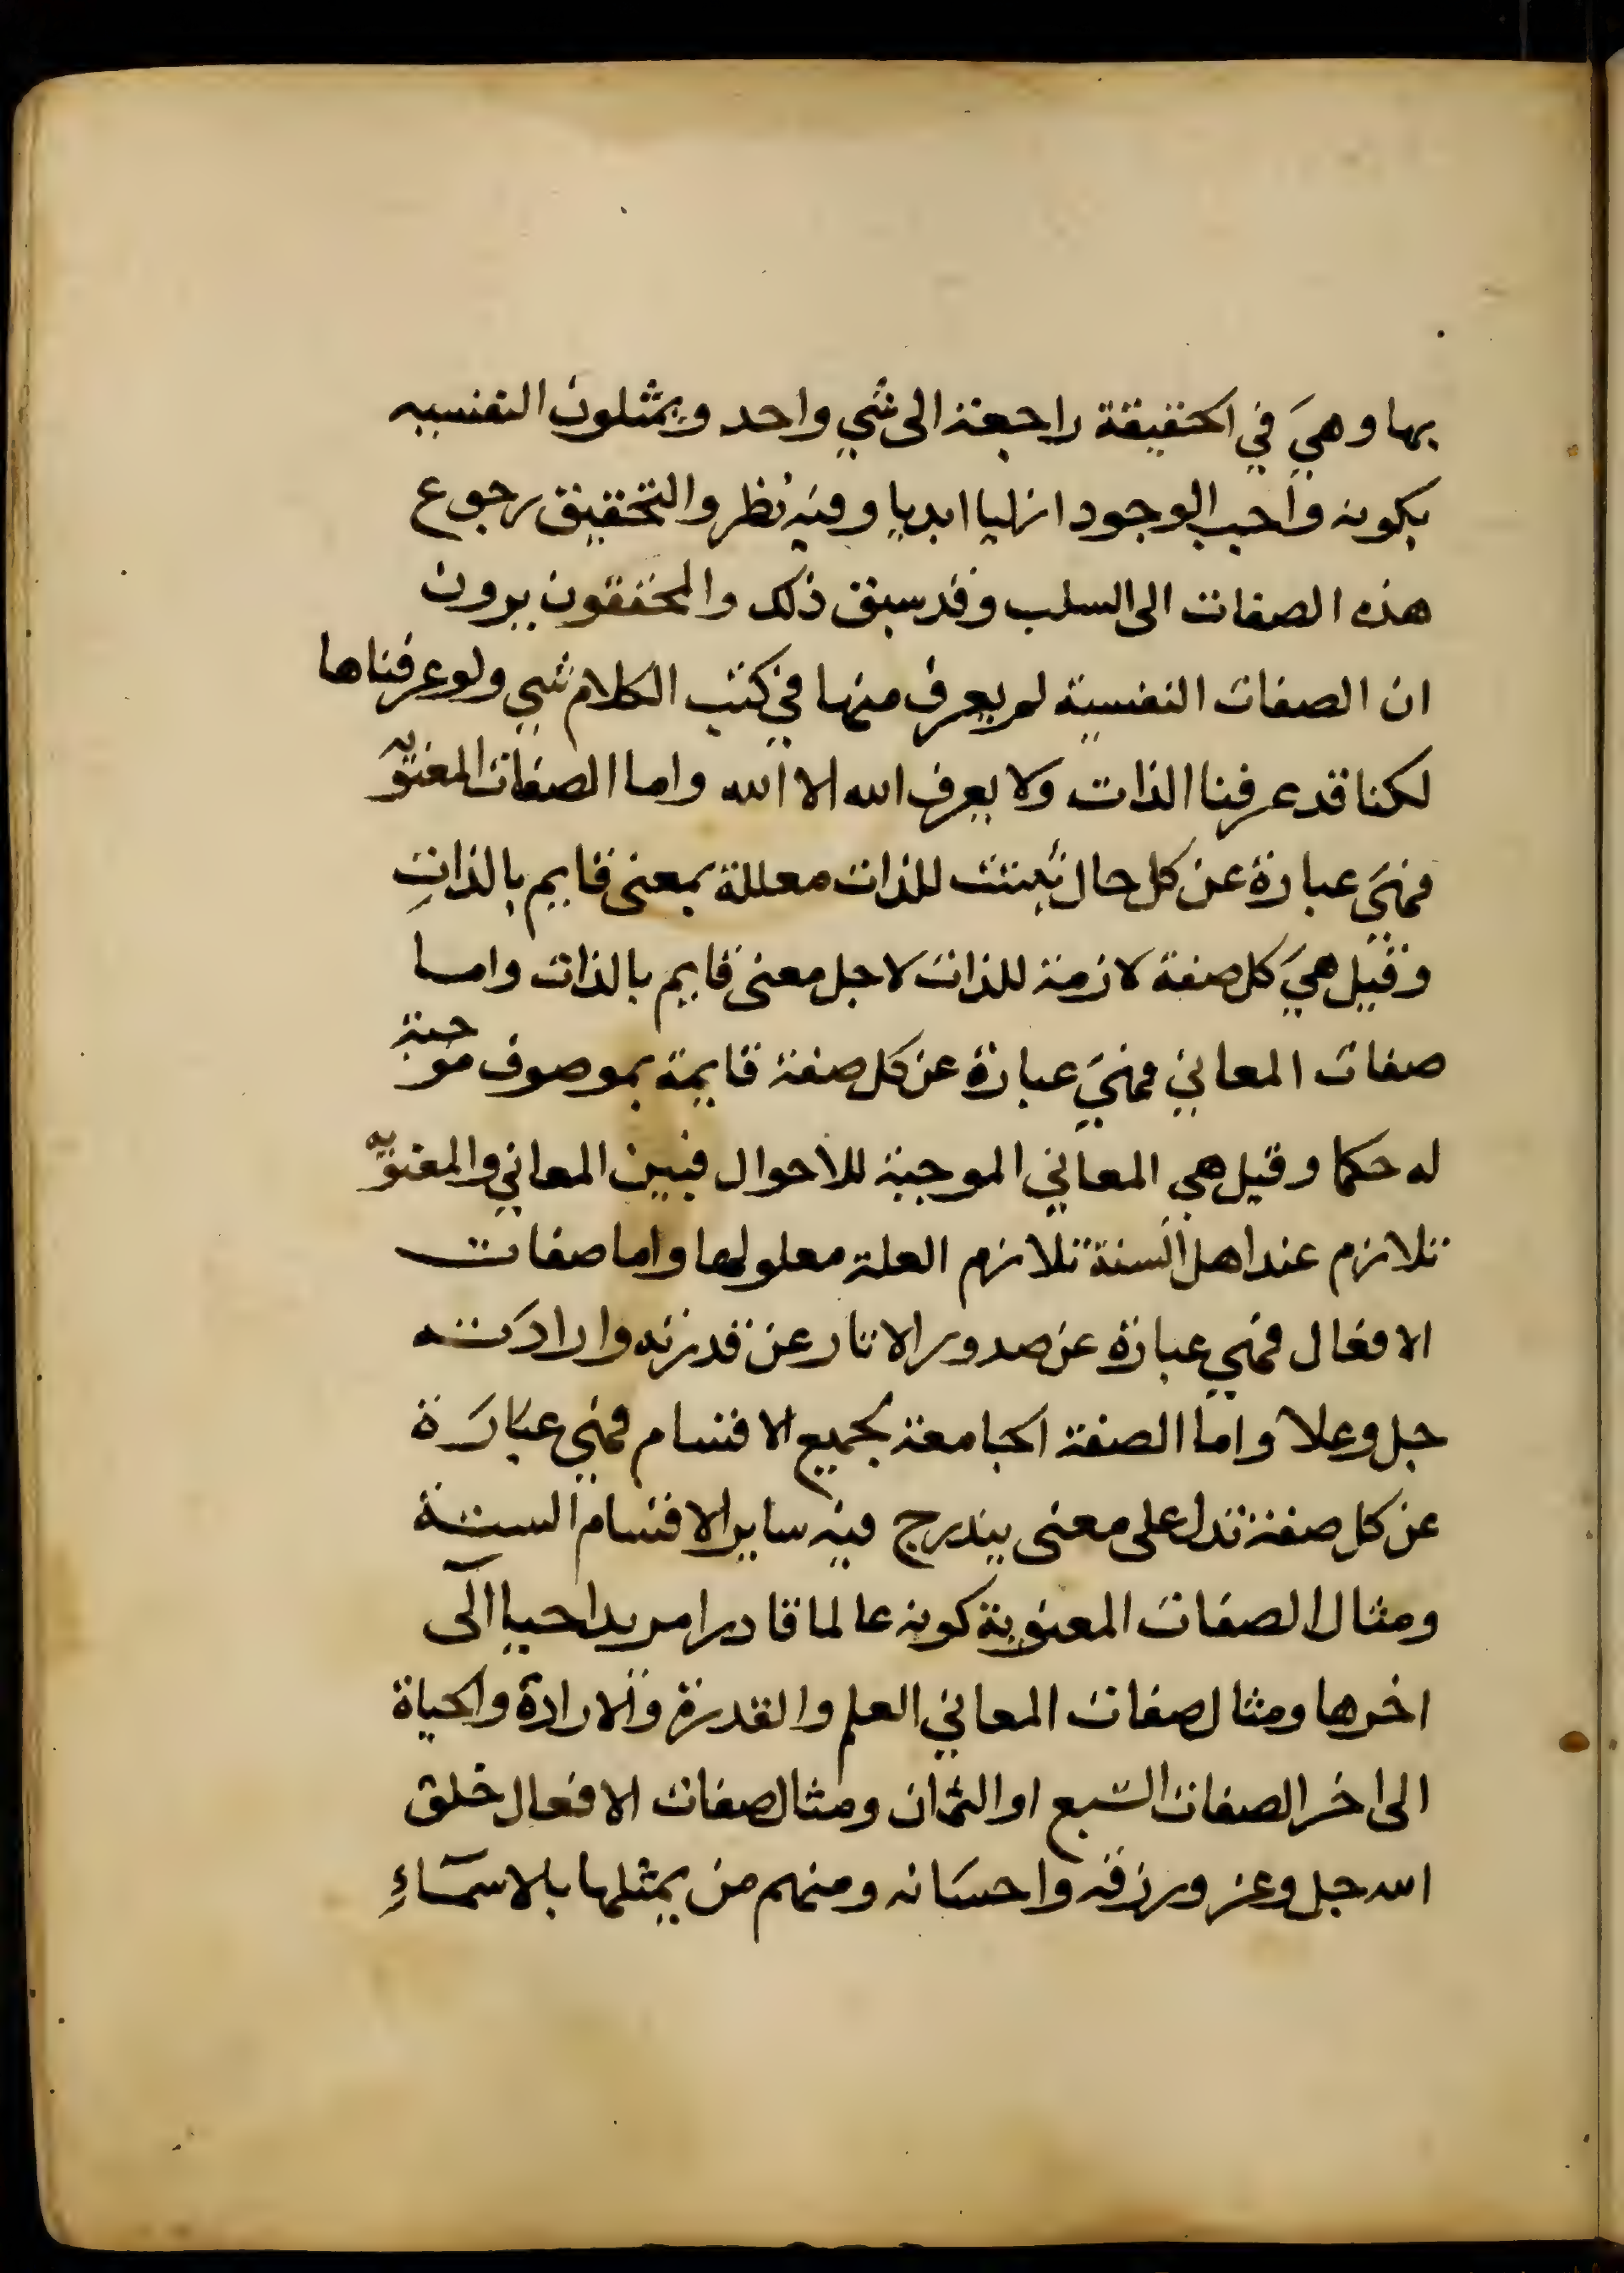 بها وهي في الحقيقة راجعة الى شي واحد ويمثلون النفسيه
بكونه واجب الوجود ازليا ابديا وفيه نظر والتحقيق رجوع
هذه الصفات الى السلب وقد سبق ذلك والمحققون يرون
ان الصفات النفسية لم يعرف منها في كتب الكلام شي ولو عرفناها
لكنا قد عرفنا الذات ولا يعرف الله الا الله واما الصفات المعنويه
فهي عبارة عن كل حال تثبت للذات معللة بمعنى قايم بالذات
وقيل هي كل صفة لازمة للذات لاجل معنى قايم بالذات واما
صفات المعاني فهي عبارة عن كل صفة قايمة بموصوف موجبة
له حكما وقيل هي المعاني الموجبة للاحوال فبين المعاني والمعنويه
تلازم عند اهل السنة تلازم العلة معلولها واما صفات
الافعال فهي عبارة عن صدور الاثار عن قدرته وارادته
جل وعلا واما الصفة الجامعة لجميع الاقسام فهي عبارة
عن كل صفة تدل على معنى يندرج فيه ساير الاقسام الستة
ومثال الصفات المعنوية كونه عالما قادرا مريدا حيا الى
اخرها ومثال صفات المعاني العلم والقدرة والارادة والحياة
الى اخر الصفات السبع او الثمان ومثال صفات الافعال خلق
الله جل وعز ورزقه واحسانه ومنهم من يمثلها بالاسماء